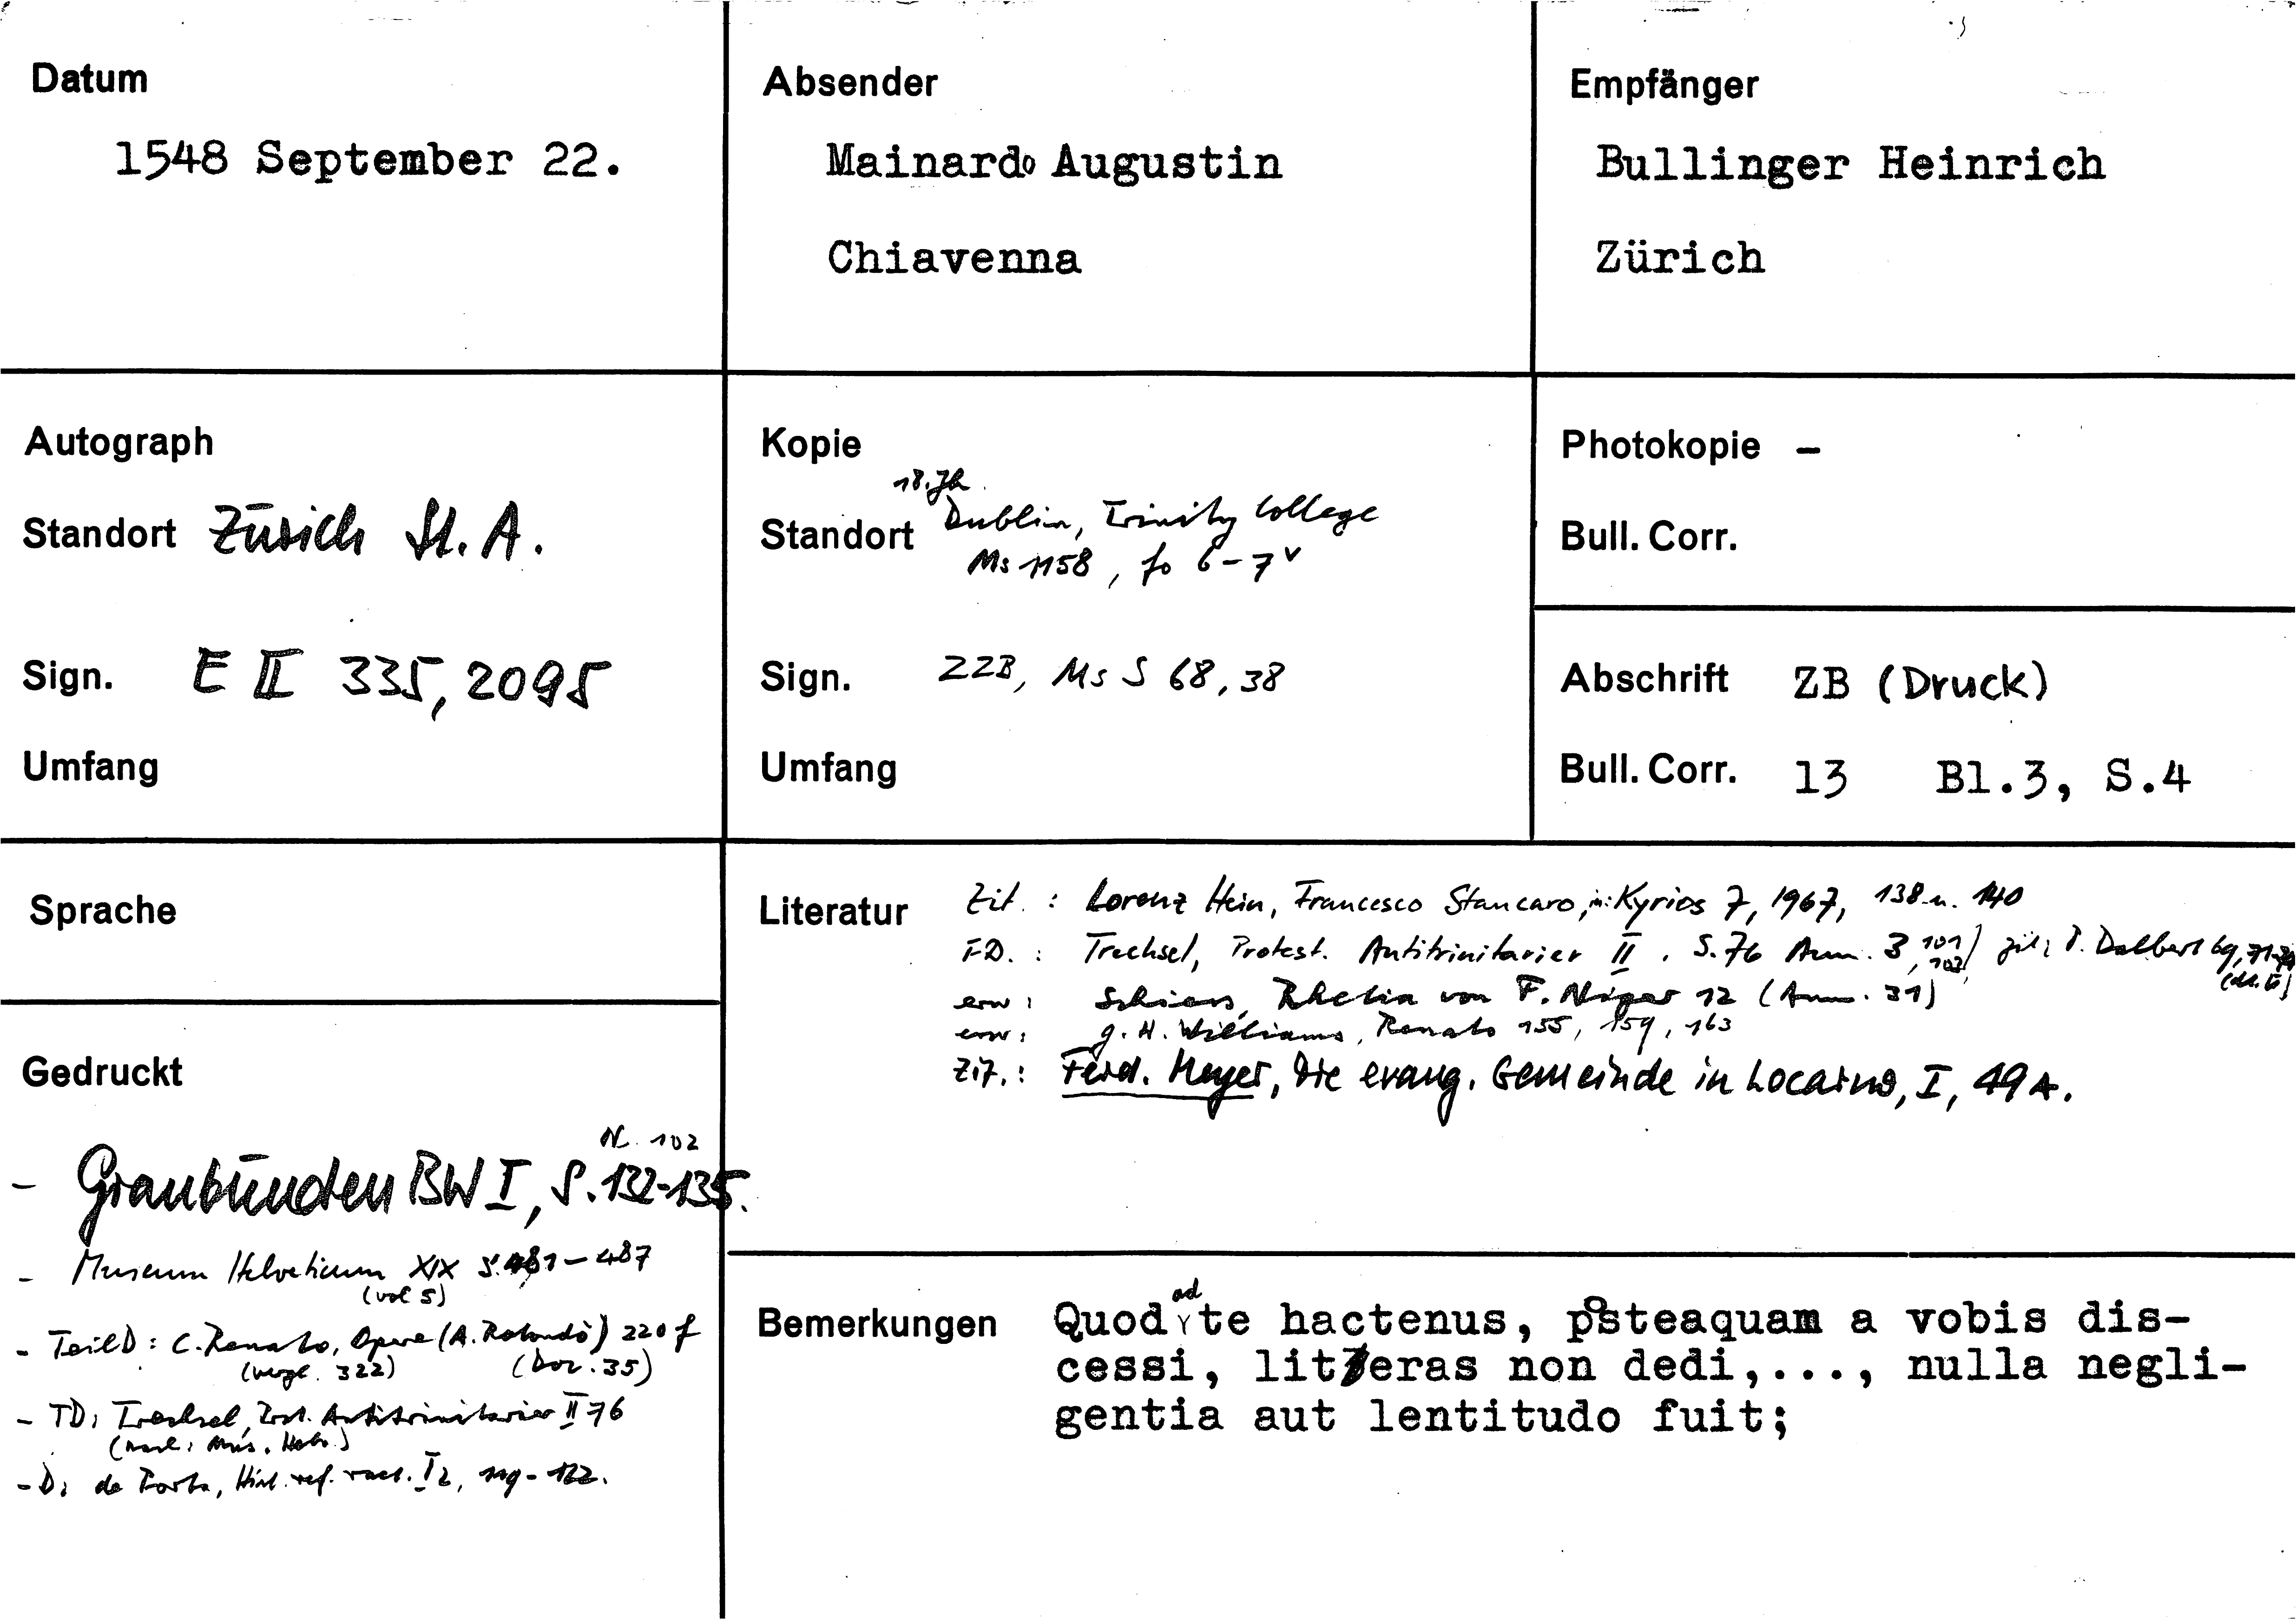 Datum
1548 September 22.
Absender
Mainardo Augustin
Chiavenna
Empfänger
Bullinger Heinrich
Zürich
Autograph
Standort Zürich St. A.
Sign. E II 335, 2095
Umfang
Kopie
18. Jh.
Standort Dublin, Trinity College
Ms 1158, fo 6-7v
Sign. ZZB, Ms S 68, 38
Umfang
Photokopie -
Bull. Corr.
Abschrift ZB (Druck)
Bull. Corr. 13 Bl.3, S.4
Sprache
Gedruckt
Nr. 102
- Graubünden BW I, S. 132-135.
- Museum Helveticum XIX S. 481-487
(vol 5)
- Teil D: C. Renato, Opere (A. Rotondò) 220 f
(vergl. 322) (Doc. 35)
- TD: Trechsel, Prot. Antitrinitarier II 76
(nach: Mus. Helv.)
- D: de Porta, Hist. ref. raet. I 2, 119-122.
Literatur Zit. : Lorenz Hein, Francesco Stancaro, in: Kyrios 7, 1967, 138 u. 140
TD. : Trechsel, Protest. Antitrinitarier II. S. 76 Anm. 3, 101 / zit: P. Dalbert 69, 71
102
erw: Schiess, Rhetia von F. Niger 12 (Anm. 31)
erw: G. H. Williams, Renato 155, 159, 163
Zit.: Ferd. Meyer, Die evang. Gemeinde in Locarno, I, 49 A.
Bemerkungen Quod ad te hactenus, posteaquam a vobis dis-
cessi, literas non dedi,..., nulla negli-
gentia aut lentitudo fuit;